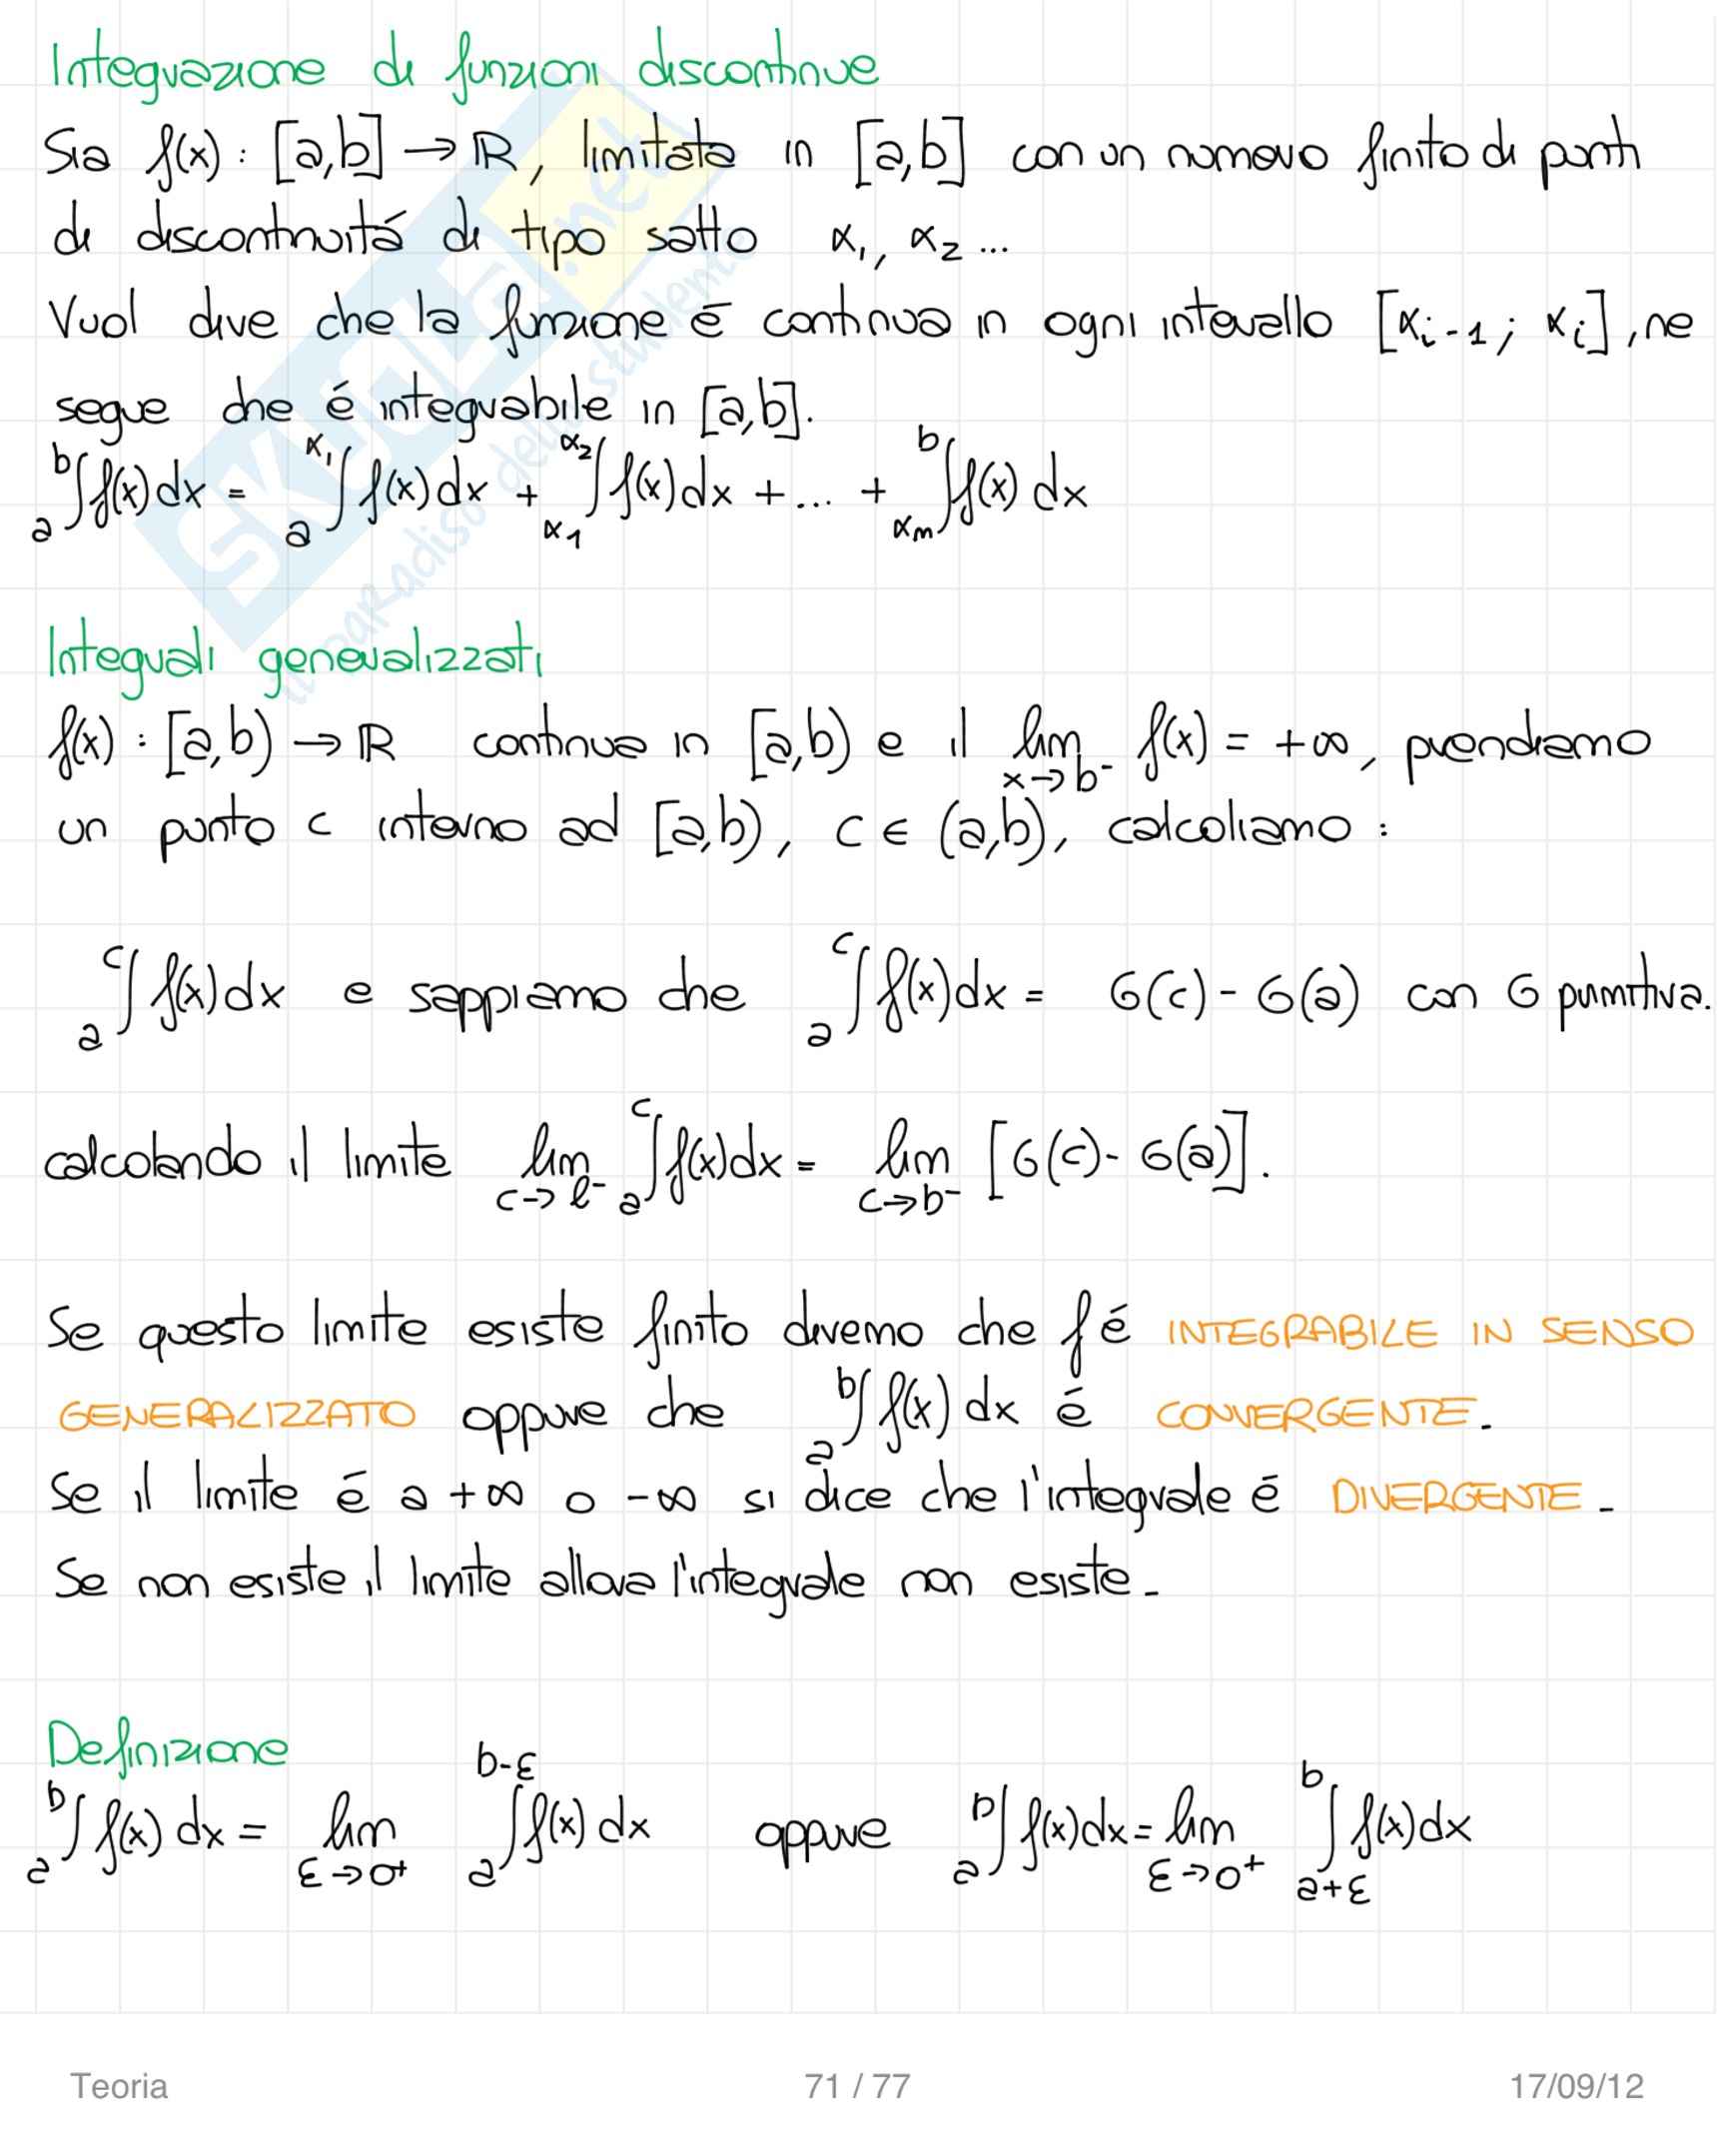 Integrazione di funzioni discontinue
Sia f(x) : [a,b] → ℝ, limitata in [a,b] con un numero finito di punti
di discontinuitá di tipo salto α₁, α₂ ...
Vuol dire che la funzione é continua in ogni intervallo [αᵢ₋₁ ; αᵢ], ne
segue che é integrabile in [a,b].
ₐᵇ∫ f(x) dx = ₐ^α₁∫ f(x) dx + α₁^α₂∫ f(x) dx + ... + αₘ^b∫ f(x) dx
Integrali generalizzati
f(x) : [a,b) → ℝ continua in [a,b) e il lim x→b⁻ f(x) = +∞, prendiamo
un punto c interno ad [a,b), c ∈ (a,b), calcoliamo :
ₐᶜ∫ f(x) dx e sappiamo che ₐᶜ∫ f(x) dx = G(c) - G(a) con G primitiva.
calcolando il limite lim c→b⁻ ₐᶜ∫ f(x) dx = lim c→b⁻ [G(c) - G(a)].
Se questo limite esiste finito diremo che f é INTEGRABILE IN SENSO
GENERALIZZATO oppure che ₐᵇ∫ f(x) dx é CONVERGENTE.
Se il limite é a +∞ o -∞ si dice che l'integrale é DIVERGENTE.
Se non esiste il limite allora l'integrale non esiste.
Definizione
ₐᵇ∫ f(x) dx = lim ε→0⁺ ₐ^b-ε∫ f(x) dx oppure ₐᵇ∫ f(x) dx = lim ε→0⁺ a+ε^b∫ f(x) dx
SKUOLA.net
il paradiso dello studente
Teoria 71 / 77 17/09/12